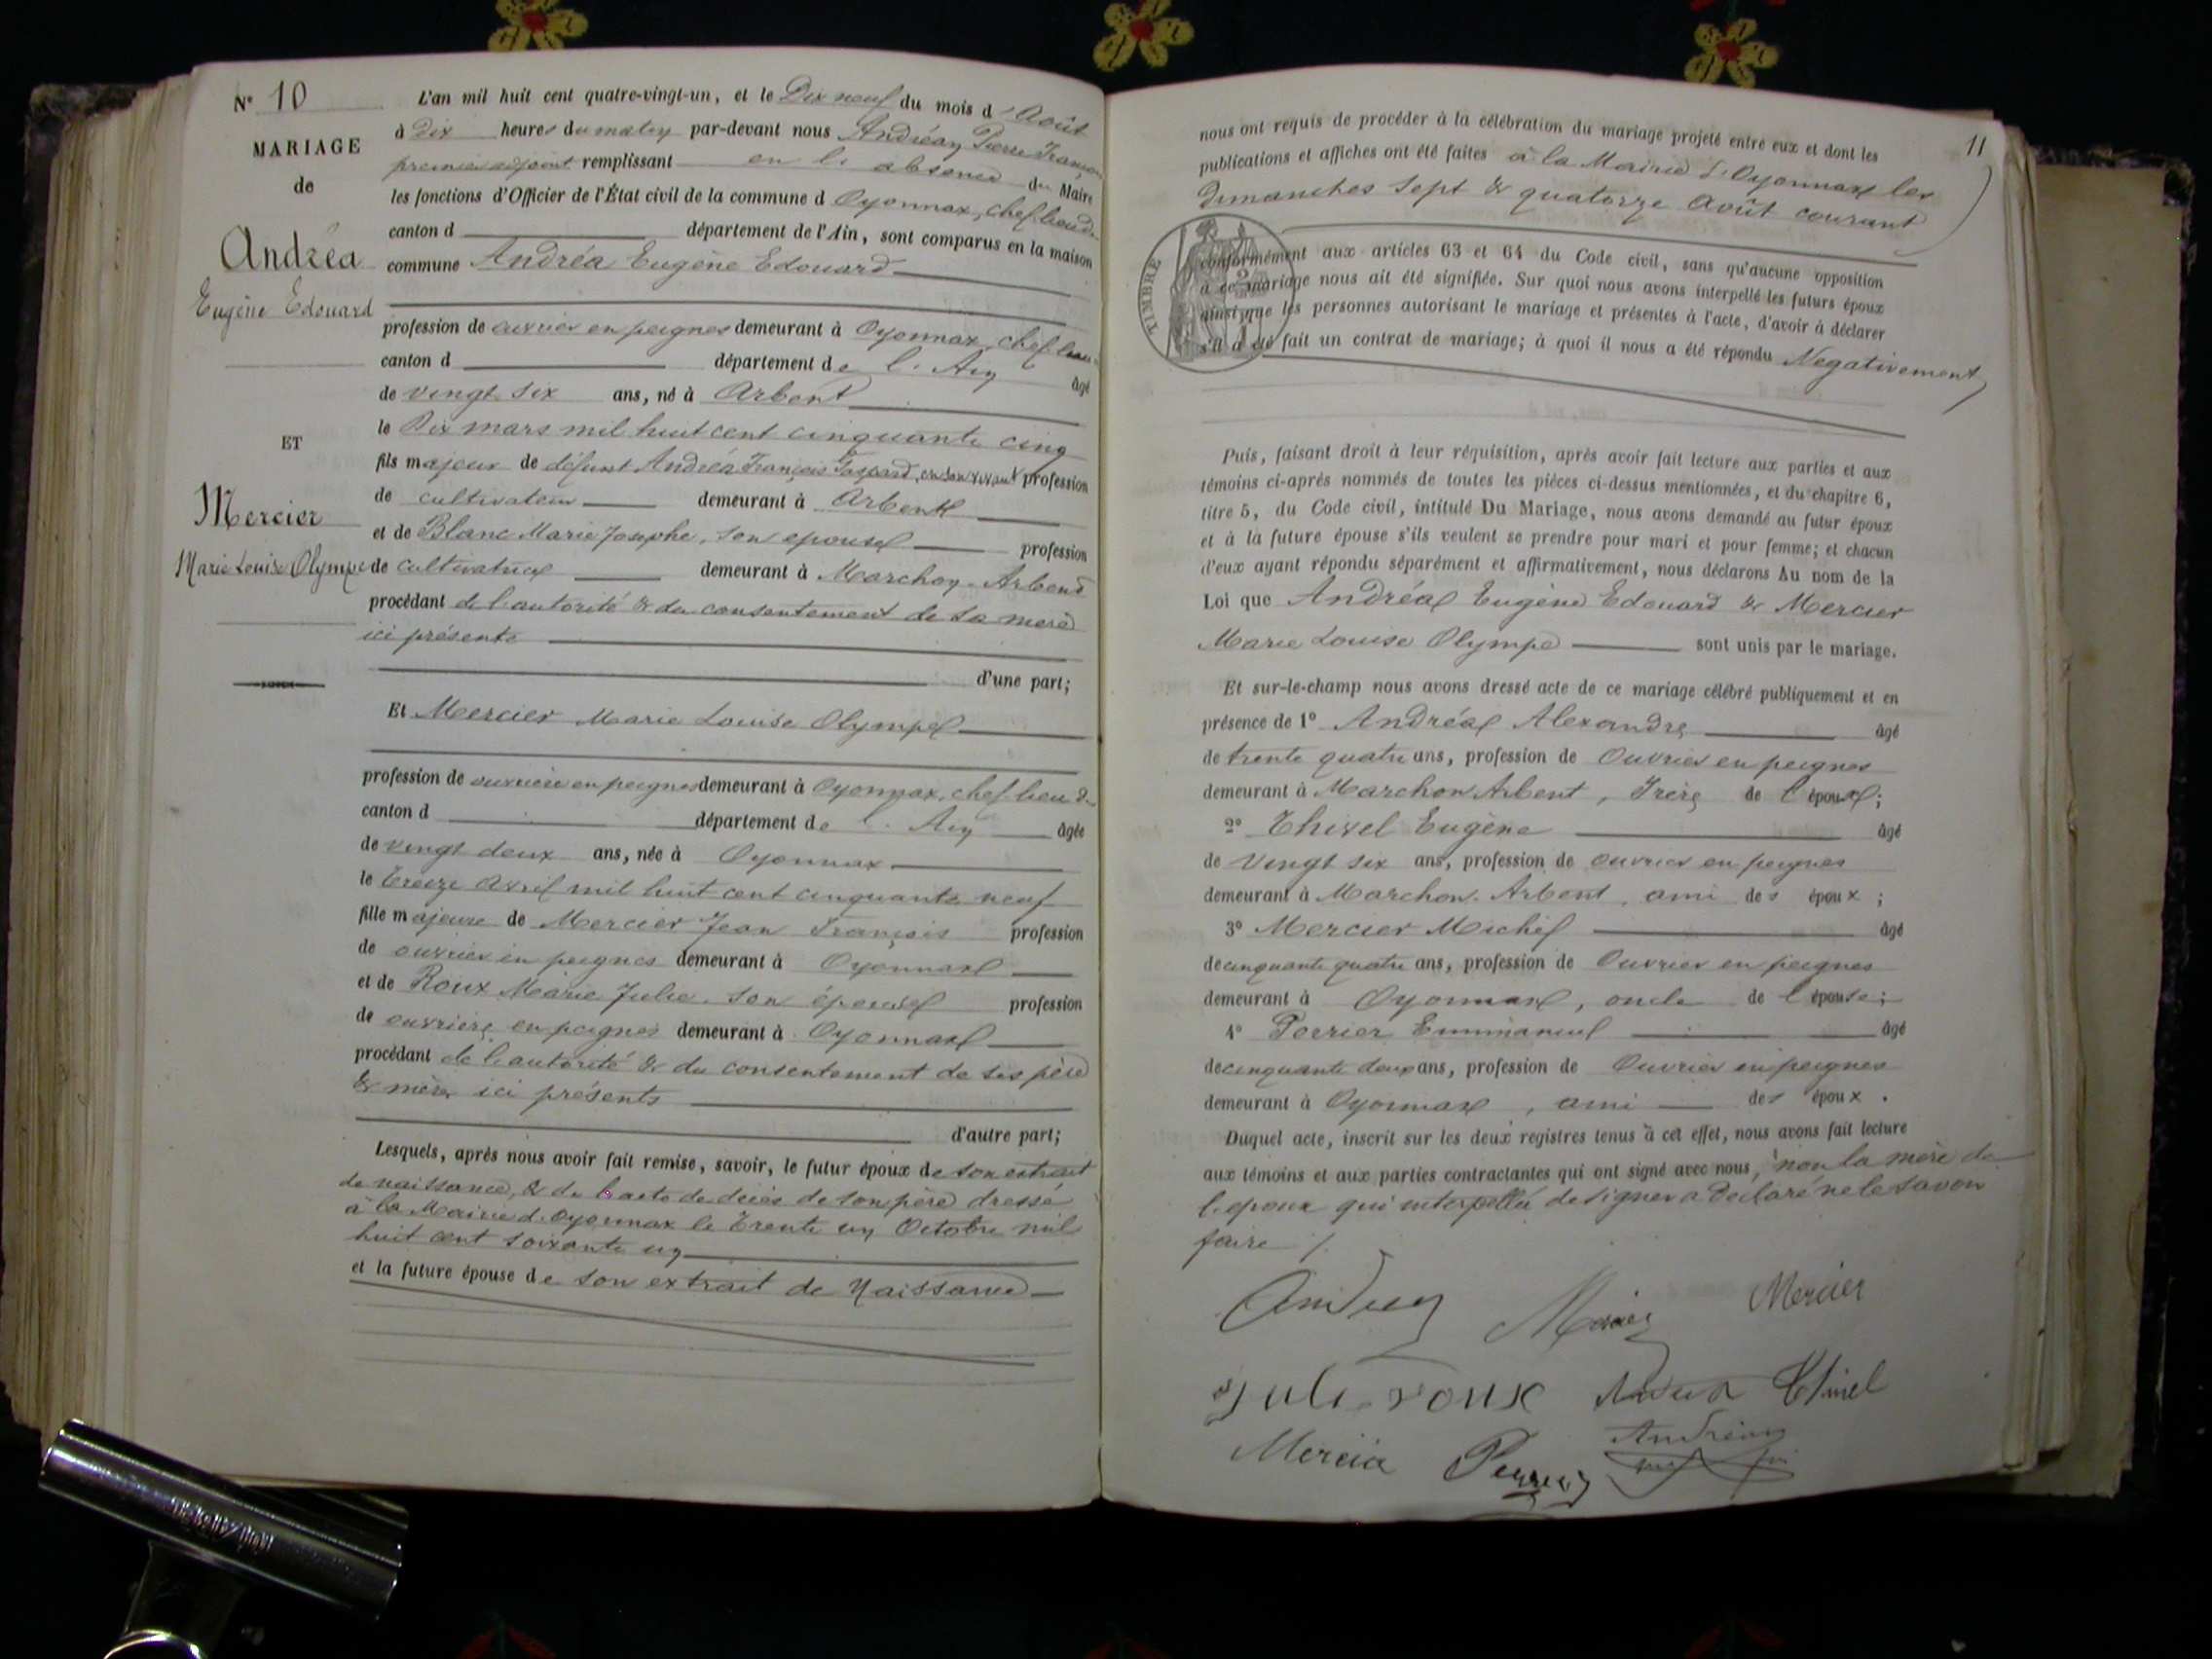 N° 10
MARIAGE
de
Andréa
Eugène Edouard
ET
Mercier
Marie Louise Olympe
L'an mil huit cent quatre-vingt-un, et le Dix neuf du mois d'Août
à Dix heures du matin par-devant nous Andréan Pierre François
premier adjoint remplissant en l'absence du Maire
les fonctions d'Officier de l'État civil de la commune d Oyonnax, chef lieu de
canton d département de l'Ain, sont comparus en la maison
commune Andréa Eugène Edouard
profession de ouvrier en peignes demeurant à Oyonnax, chef lieu
canton d département de l'Ain âgé
de vingt six ans, né à Arbent
le Dix mars mil huit cent cinquante cinq
fils majeur de défunt Andréa François Gaspard, en son vivant profession
de cultivateur demeurant à Arbent
et de Blanc Marie Josephe, son epouse profession
de cultivatrice demeurant à Marchon-Arbent
procédant de l'autorité & du consentement de sa mère
ici présente
d'une part;
Et Mercier Marie Louise Olympe
profession de ouvrière en peignes demeurant à Oyonnax, chef-lieu de
canton d département de l'Ain âgée
de vingt deux ans, née à Oyonnax
le Treize avril mil huit cent cinquante neuf
fille majeure de Mercier Jean François profession
de ouvrier en peignes demeurant à Oyonnax
et de Roux Marie Julie, son épouse profession
de ouvrière en peignes demeurant à Oyonnax
procédant de l'autorité & du consentement de ses père
& mère ici présents
d'autre part;
Lesquels, après nous avoir fait remise, savoir, le futur époux de son extrait
de naissance, & de l'acte de décès de son père dressé
à la Mairie d'Oyonnax le Trente un Octobre mil
huit cent soixante un
et la future épouse de son extrait de Naissance
11
nous ont requis de procéder à la célébration du mariage projeté entre eux et dont les
publications et affiches ont été faites à la Mairie d'Oyonnax les
dimanches sept & quatorze Août courant
TIMBRE
conformément aux articles 63 et 64 du Code civil, sans qu'aucune opposition
à ce mariage nous ait été signifiée. Sur quoi nous avons interpellé les futurs époux
ainsi que les personnes autorisant le mariage et présentes à l'acte, d'avoir à déclarer
s'il a été fait un contrat de mariage; à quoi il nous a été répondu Negativement
Puis, faisant droit à leur réquisition, après avoir fait lecture aux parties et aux
témoins ci-après nommés de toutes les pièces ci-dessus mentionnées, et du chapitre 6,
titre 5, du Code civil, intitulé Du Mariage, nous avons demandé au futur époux
et à la future épouse s'ils veulent se prendre pour mari et pour femme; et chacun
d'eux ayant répondu séparément et affirmativement, nous déclarons Au nom de la
Loi que Andréa Eugène Edouard & Mercier
Marie Louise Olympe sont unis par le mariage.
Et sur-le-champ nous avons dressé acte de ce mariage célébré publiquement et en
présence de 1° Andréa Alexandre âgé
de trente quatre ans, profession de Ouvrier en peignes
demeurant à Marchon Arbent, frère de l'époux;
2° Thivel Eugène âgé
de vingt six ans, profession de ouvrier en peignes
demeurant à Marchon-Arbent, ami des époux;
3° Mercier Michel âgé
de cinquante quatre ans, profession de Ouvrier en peignes
demeurant à Oyonnax, oncle de l'épouse;
4° Perrier Emmanuel âgé
de cinquante deux ans, profession de Ouvrier en peignes
demeurant à Oyonnax, ami des époux.
Duquel acte, inscrit sur les deux registres tenus à cet effet, nous avons fait lecture
aux témoins et aux parties contractantes qui ont signé avec nous, non la mère de
l'epoux qui interpellée de signer a déclaré ne le savoir
faire
Mercier
Julie roux Thivel
Mercier